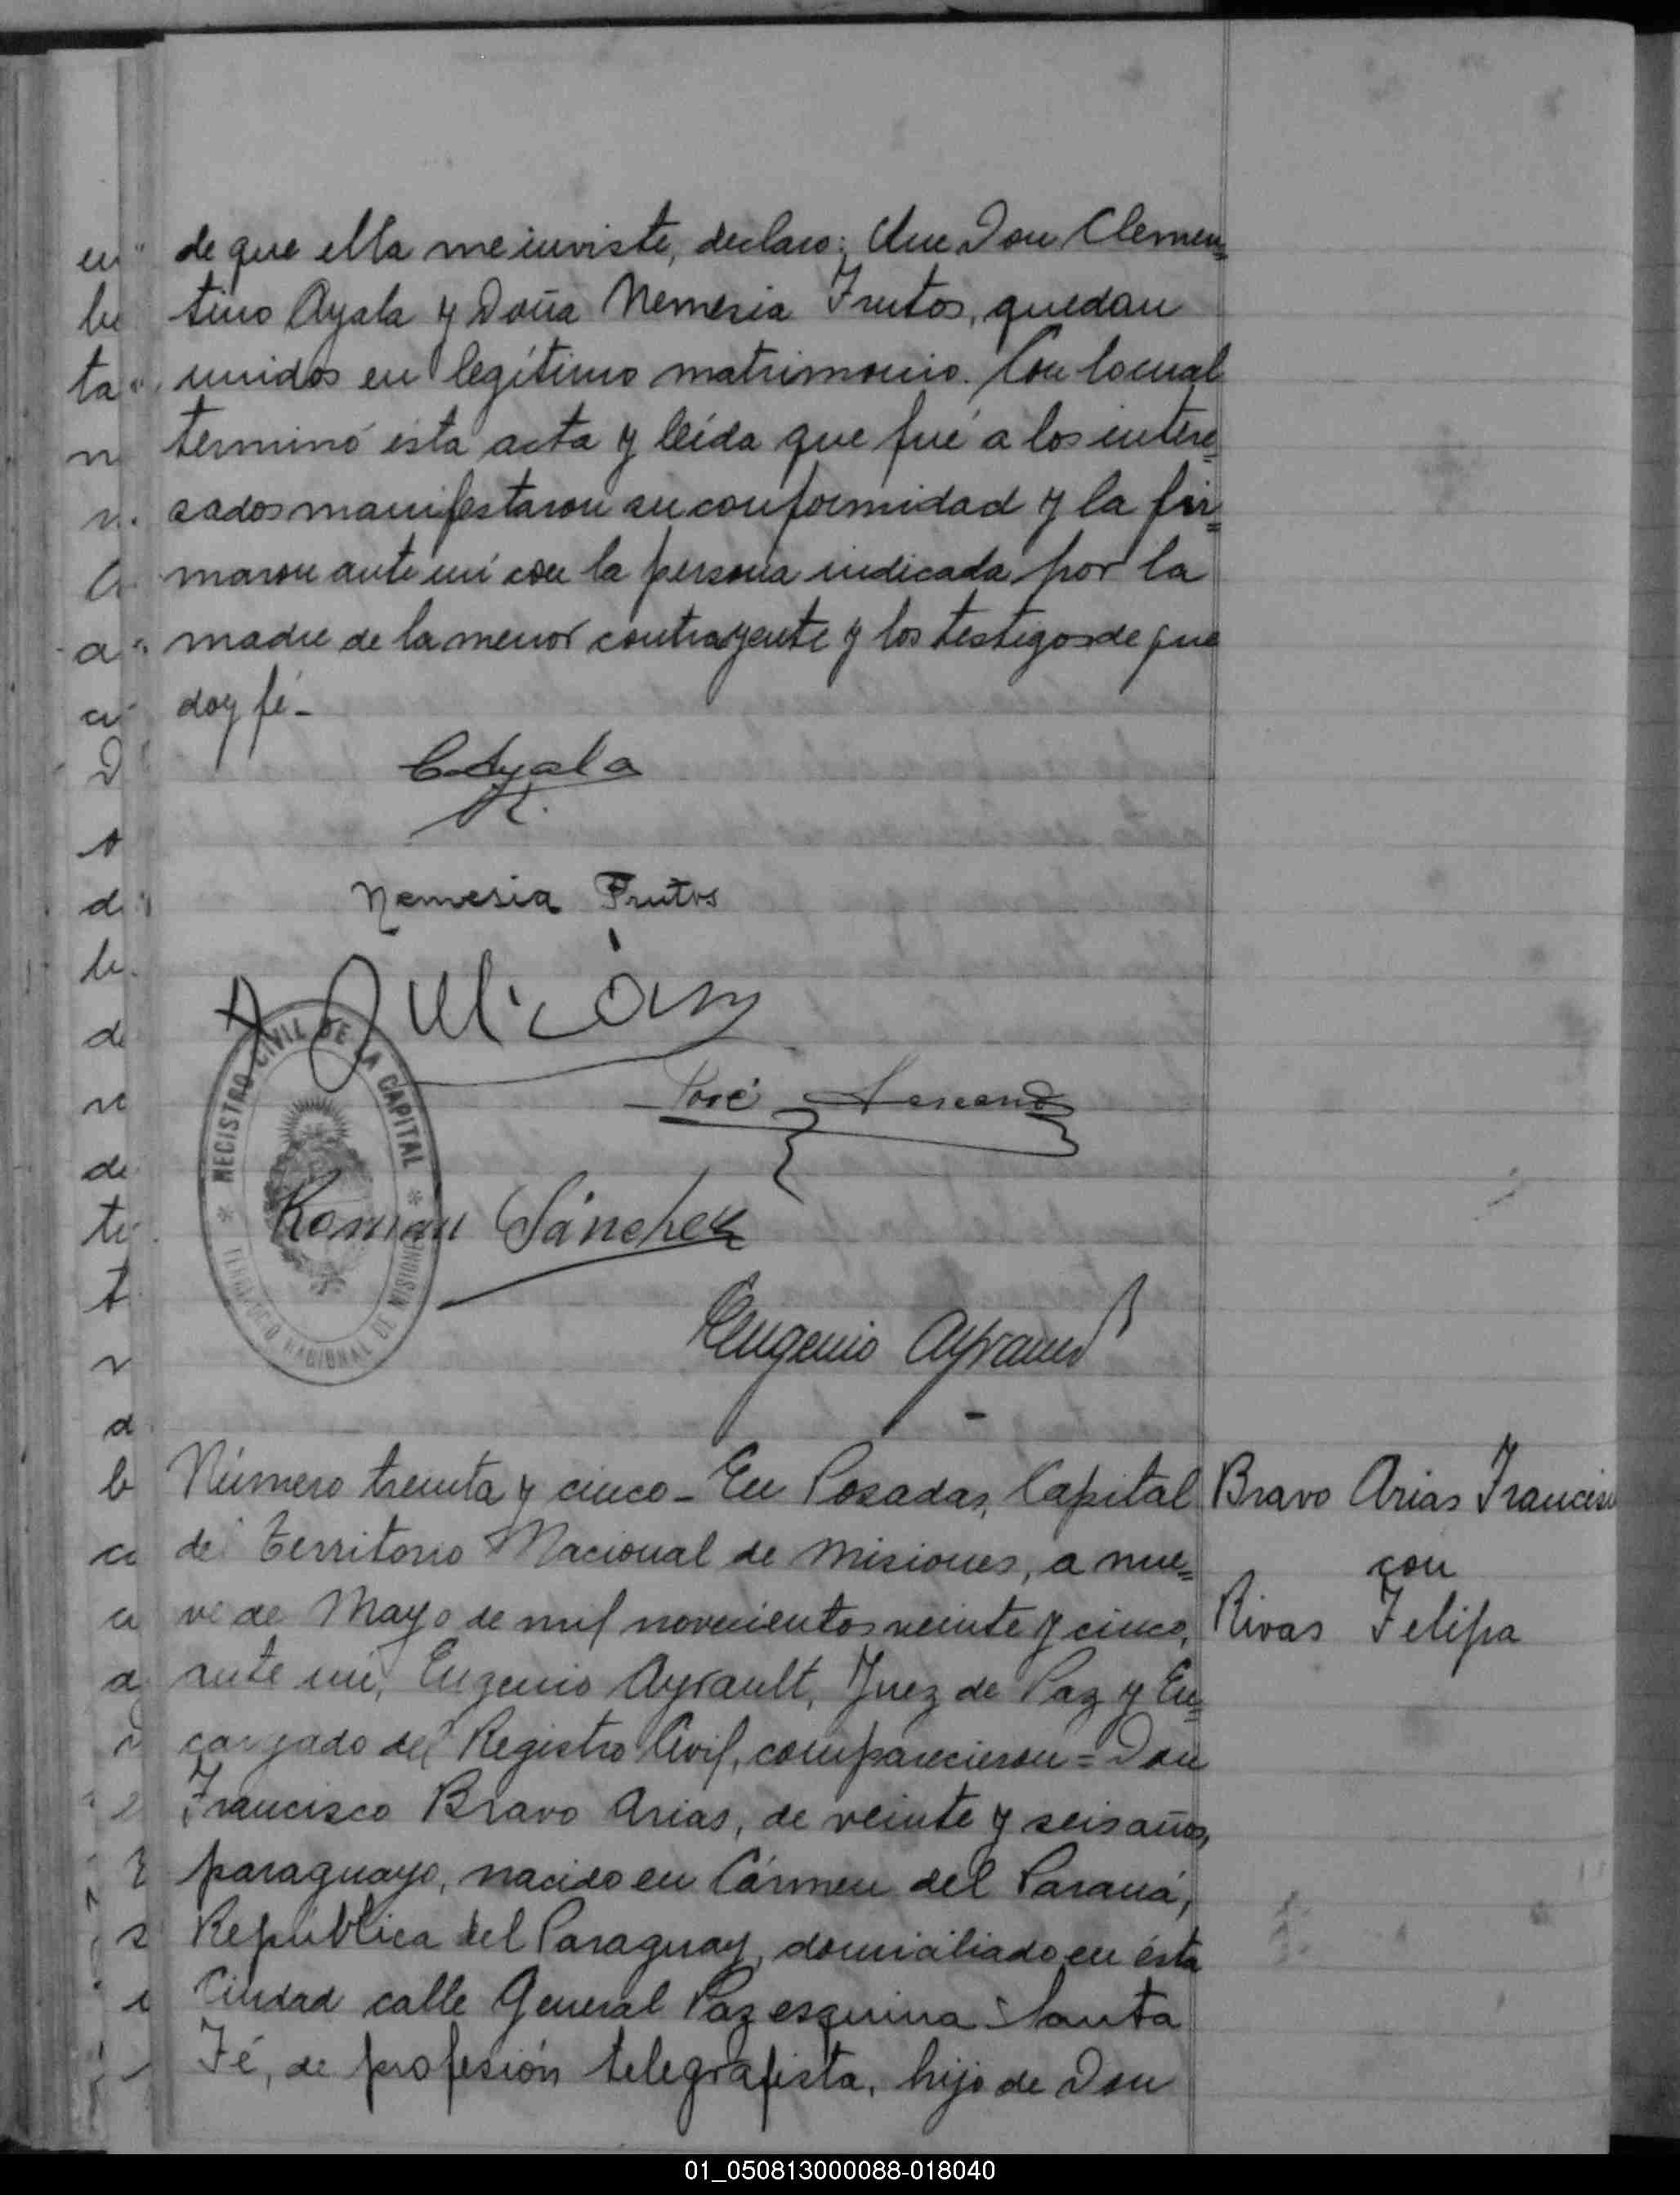 de que ella me inviste, declaro: Que Don Clemen=
tino Ayala y Doña Nemesia Frutos, quedan
unidos en legítimo matrimonio. Con lo cual
terminó ésta acta y leída que fué a los intere=
sados manifestaron su conformidad y la fir=
maron ante mí con la persona indicada por la
madre de la menor contrayente y los testigos de que
doy fé-
CAyala
Nemesia Frutos
A Julian
José
REGISTRO CIVIL DE LA CAPITAL
TERRITORIO NACIONAL DE MISIONES
Roman Sánchez
Eugenio Ayrault
Número treinta y cinco - En Posadas, Capital
del Territorio Nacional de Misiones, a nue=
ve de Mayo de mil novecientos veinte y cinco,
ante mí, Eugenio Ayrault, Juez de Paz y En=
cargado del Registro Civil, comparecieron = Don
Francisco Bravo Arias, de veinte y seis años,
paraguayo, nacido en Cármen del Paraná,
República del Paraguay, domiciliado en ésta
Ciudad calle General Paz esquina Santa
Fé, de profesión telegrafista, hijo de Don
Bravo Arias Francisco
con
Rivas Felipa
01_050813000088-018040